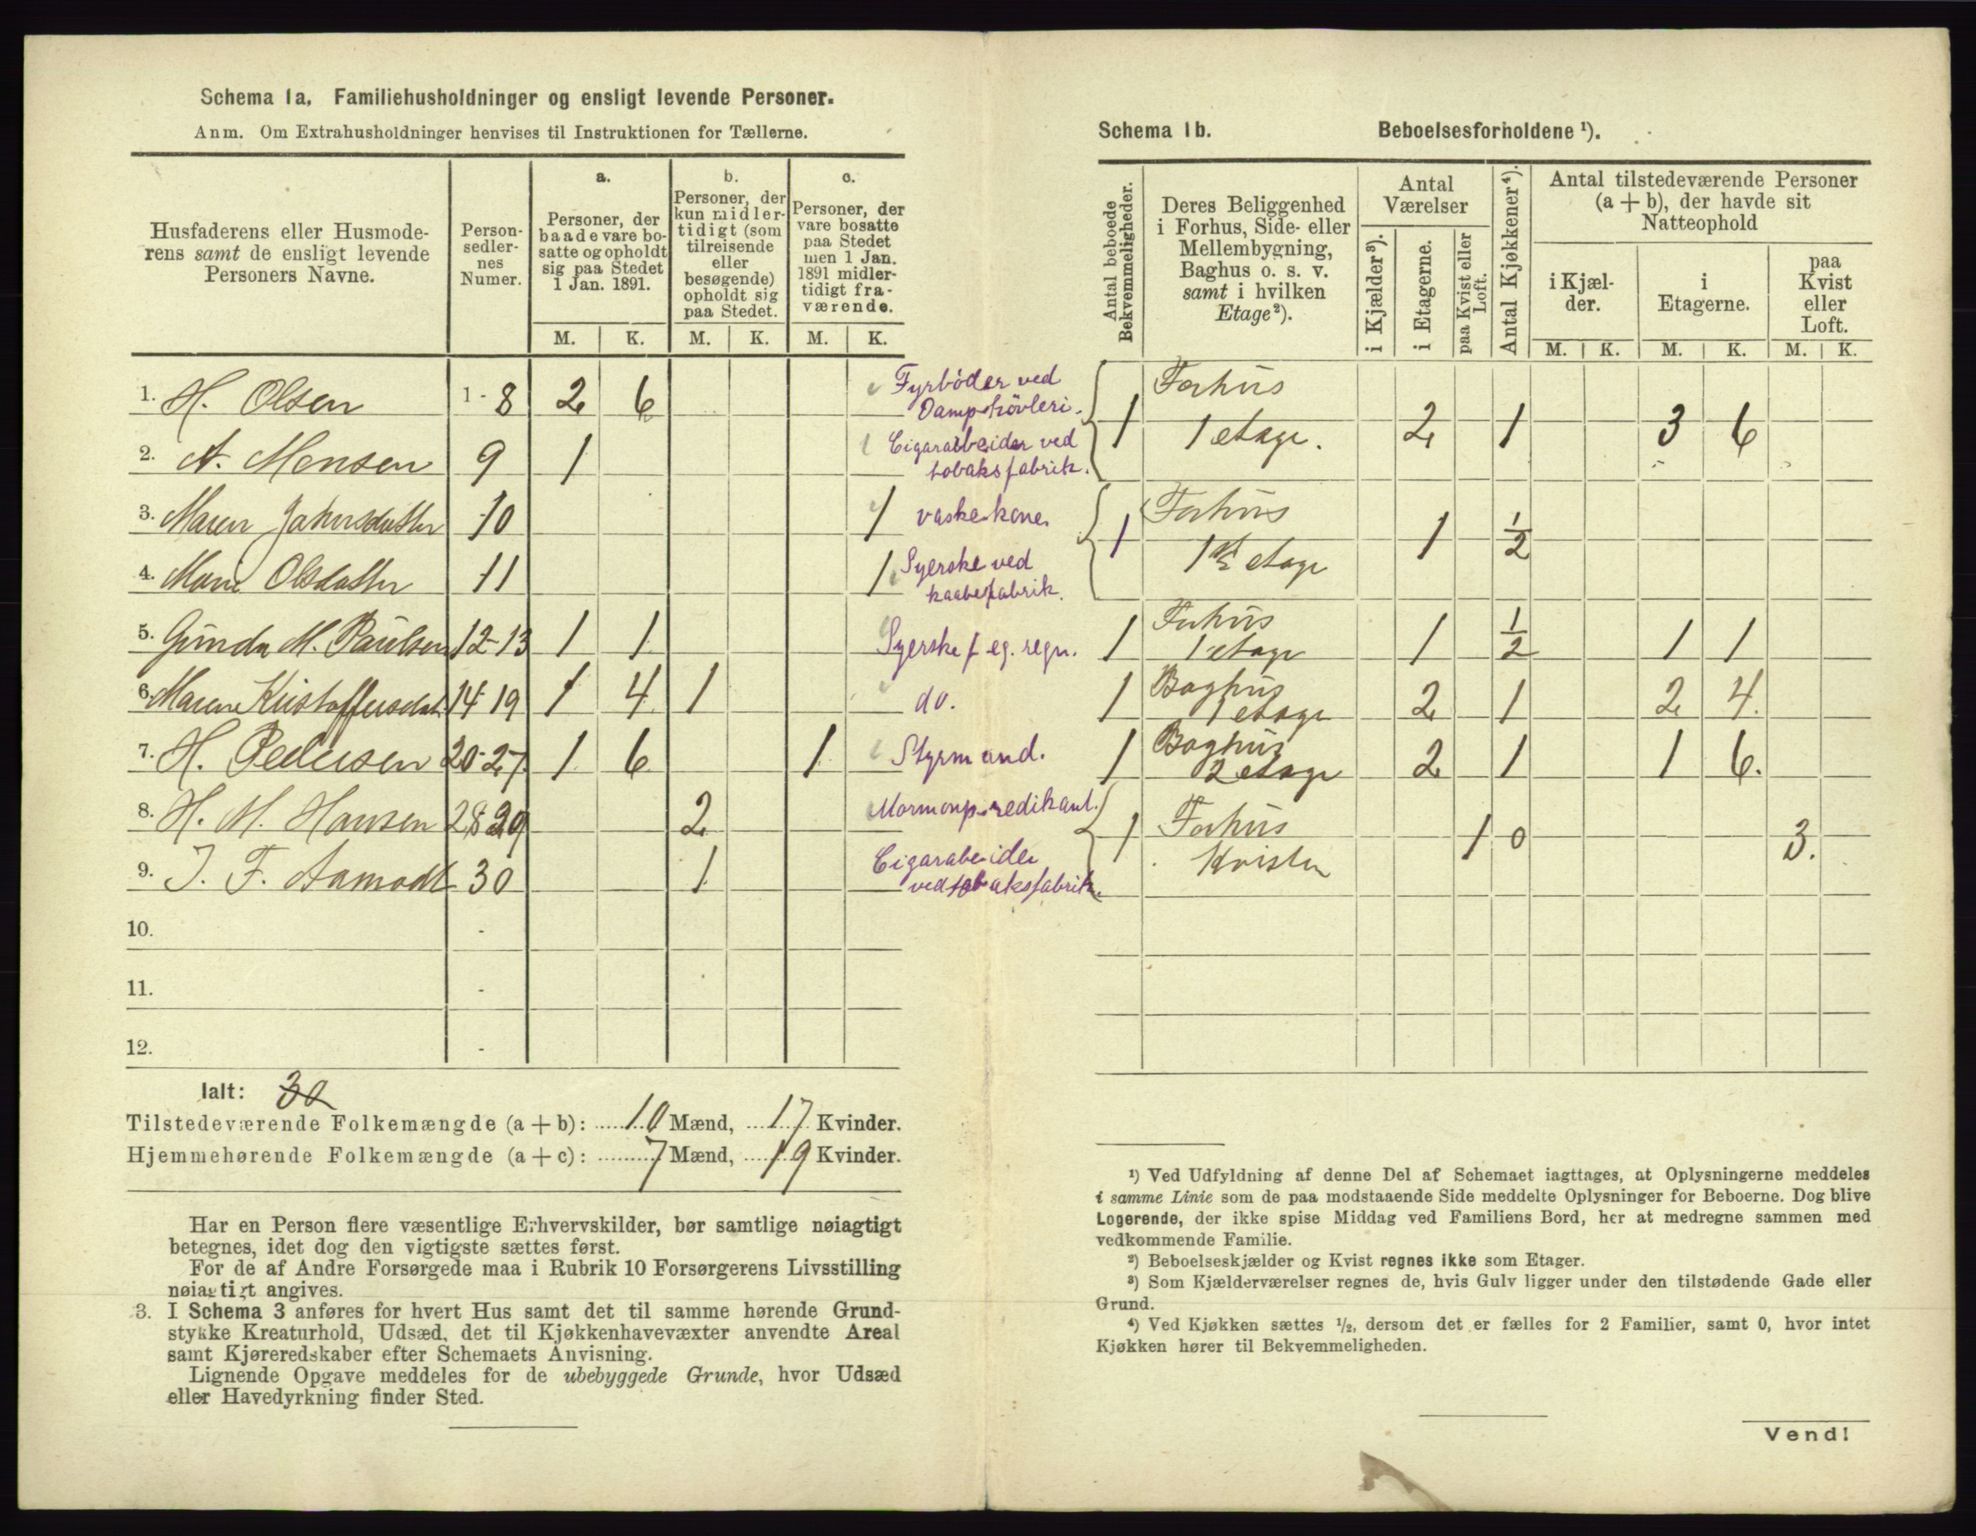 Schema 1a. Familiehusholdninger og ensligt levende Personer.
Anm. Om Extrahusholdninger henvises til Instruktionen for Tællerne.
Husfaderens eller Husmoderens samt de ensligt levende Personers Navne.
Personsedlernes Numer.
a. Personer, der baade vare bosatte og opholdt sig paa Stedet 1 Jan. 1891.
b. Personer, der kun midlertidigt (som tilreisende eller besøgende) opholdt sig paa Stedet.
c. Personer, der vare bosatte paa Stedet men 1 Jan. 1891 midlertidigt fraværende.
M. K. M. K. M. K.
1. H. Olsen 1-8 2 6 Fyrbøder ved Damphøvleri.
2. A. Monsen 9 1 Cigararbeider ved tobaksfabrik.
3. Maren Jahnsdatter 10 1 vaskekone
4. Marie Olsdatter 11 1 Syerske ved kaabefabrik.
5. Gunda M. Paulsen 12-13 1 1 Syerske f. eg. regn.
6. Maren Kristoffersdat 14-19 1 4 1 do.
7. H. Pedersen 20-27 1 6 1 Styrmand.
8. H. M. Hansen 28 29 2 Mormonpredikant.
9. J. F. Aamodt 30 1 Cigarabeider ved tobaksfabrik.
10. -
11. -
12. -
Ialt: 30
Tilstedeværende Folkemængde (a + b): 10 Mænd, 17 Kvinder.
Hjemmehørende Folkemængde (a + c): 7 Mænd, 19 Kvinder.
Har en Person flere væsentlige Erhvervskilder, bør samtlige nøiagtigt
betegnes, idet dog den vigtigste sættes først.
For de af Andre Forsørgede maa i Rubrik 10 Forsørgerens Livsstilling
nøiagtigt angives.
3. I Schema 3 anføres for hvert Hus samt det til samme hørende Grund-
stykke Kreaturhold, Udsæd, det til Kjøkkenhavevæxter anvendte Areal
samt Kjøreredskaber efter Schemaets Anvisning.
Lignende Opgave meddeles for de ubebyggede Grunde, hvor Udsæd
eller Havedyrkning finder Sted.
Schema 1b. Beboelsesforholdene ¹).
Antal beboede Bekvemmeligheder.
Deres Beliggenhed i Forhus, Side- eller Mellembygning, Baghus o. s. v. samt i hvilken Etage²).
Antal Værelser
i Kjælder³).
i Etagerne.
paa Kvist eller Loft.
Antal Kjøkkener⁴).
Antal tilstedeværende Personer (a + b), der havde sit Natteophold
i Kjælder.
i Etagerne.
paa Kvist eller Loft.
M. K. M. K. M. K.
1 Forhus 1 etage. 2 1 3 6
1 Forhus 1ste etage 1 1/2
1 Forhus 1 etage 1 1/2 1 1
1 Baghus 1 etage 2 1 2 4
1 Baghus 2 etage 2 1 1 6.
1 Forhus Kvisten 1 0 3.
¹) Ved Udfyldning af denne Del af Schemaet iagttages, at Oplysningerne meddeles
i samme Linie som de paa modstaaende Side meddelte Oplysninger for Beboerne. Dog blive
Logerende, der ikke spise Middag ved Familiens Bord, her at medregne sammen med
vedkommende Familie.
²) Beboelseskjælder og Kvist regnes ikke som Etager.
³) Som Kjælderværelser regnes de, hvis Gulv ligger under den tilstødende Gade eller
Grund.
⁴) Ved Kjøkken sættes ½, dersom det er fælles for 2 Familier, samt 0, hvor intet
Kjøkken hører til Bekvemmeligheden.
Vend!